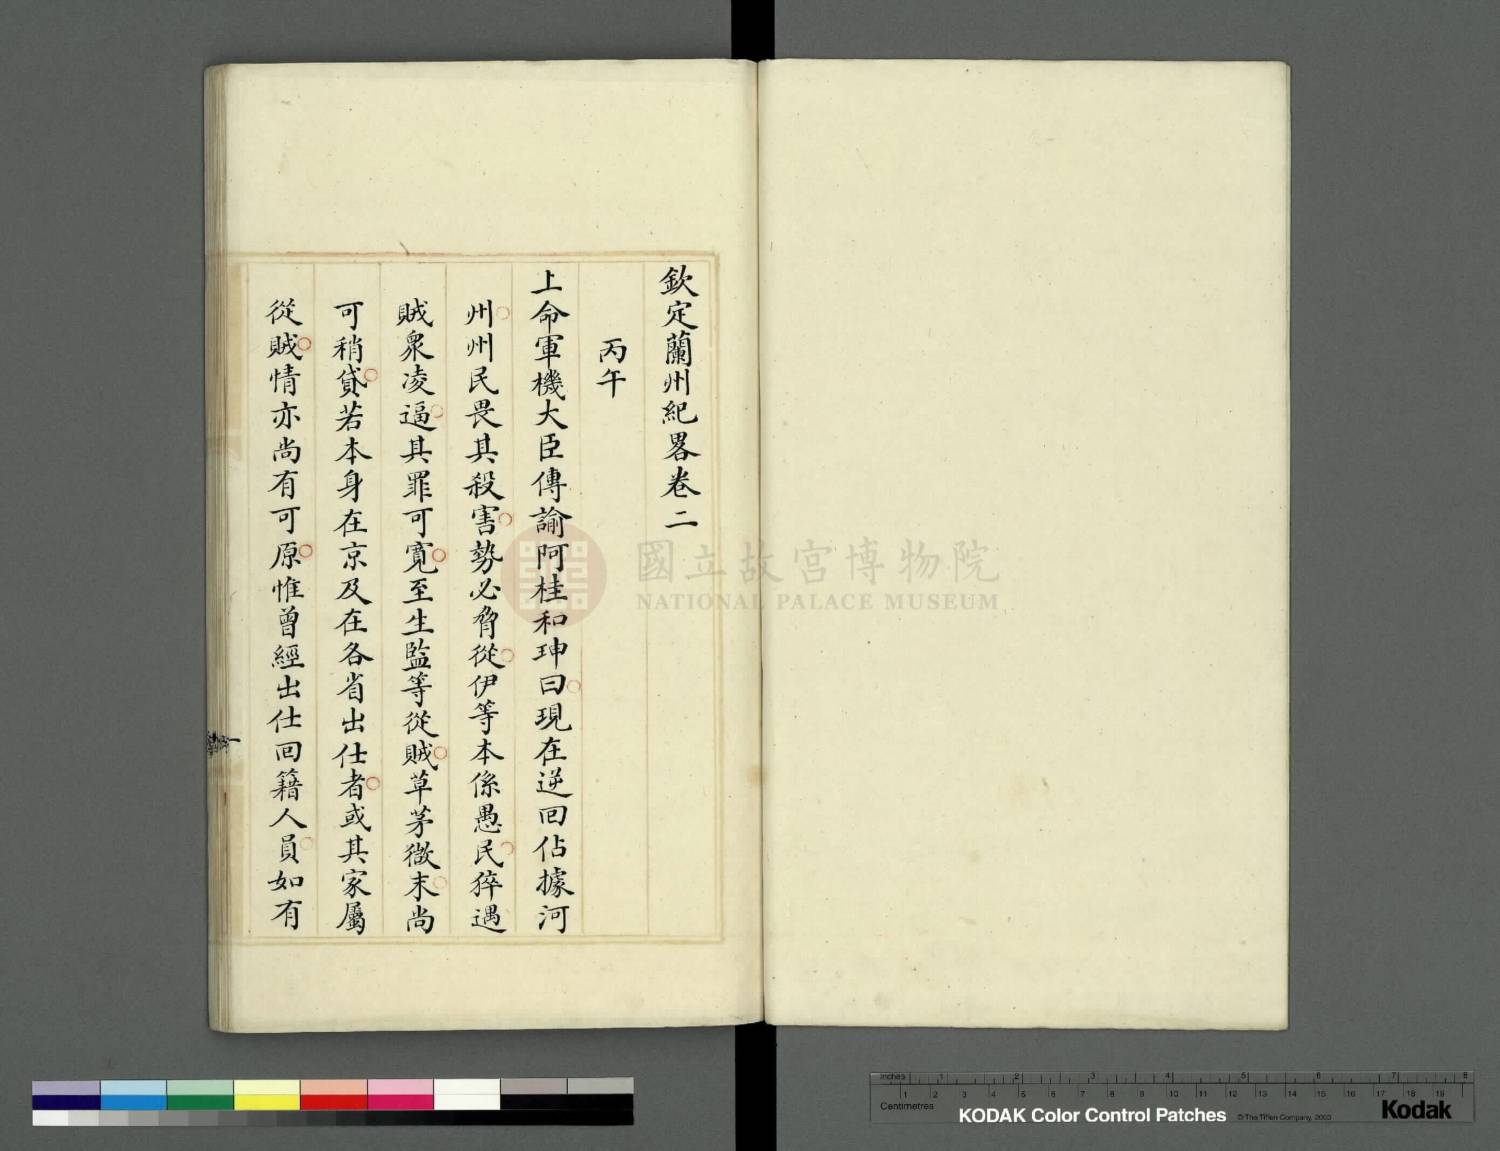 欽定蘭州紀畧卷二
丙午
上命軍機大臣傳諭阿桂和珅曰現在逆回佔據河
州州民畏其殺害勢必脅從伊等本係愚民猝遇
賊衆凌逼其罪可寬至生監等從賊草茅微末尚
可稍貸若本身在京及在各省出仕者或其家屬
從賊情亦尚有可原惟曾經出仕回籍人員如有
國立故宮博物院
NATIONAL PALACE MUSEUM
inches 1 2 3 4 5 6 7 8
Centimetres 1 2 3 4 5 6 7 8 9 10 11 12 13 14 15 16 17 18 19
KODAK Color Control Patches © The Tiffen Company, 2003 Kodak